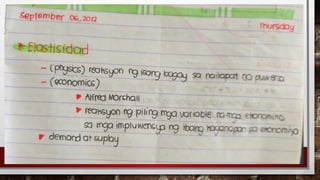 September 06, 2012
Thursday
Elastisidad
- (physics) reaksyon ng isang bagay sa nailapat na puwersa
- (economics)
Alfred Marshall
reaksyon ng piling mga variable na mga ekonomiko
sa mga impluwensya ng ibang kaganapan sa ekonomiya
demand at suplay